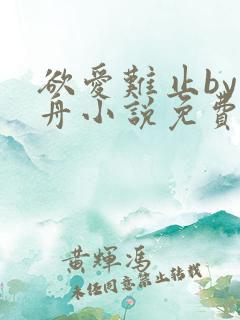 欲愛難止by
舟小說免費
黃輝馮
未經同意禁止轉載